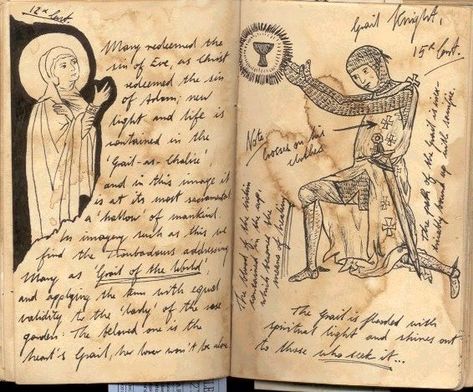 12th Cent.
Mary redeemed the
sin of Eve, as Christ
redeemed the sin
of Adam; new
light and life is
contained in the
'Grail-as-Chalice',
and in this image it
is at its most sacramental
a 'hallow' of mankind.
In imagery such as this we
find the Troubadours addressing
Mary as 'Grail of the World',
and applying the term with equal
validity to the 'lady' of the rose
garden. The beloved one is the
heart's Grail, her lover won't be alone
Grail Knight,
15th Cent.
Note
crosses on his
clothes
The blood of the victim
contained in the cup,
which becomes the
means of healing
The path of the Grail is inex-
tricably bound up with sacrifice
The Grail is flooded with
spiritual light and shines out
to those who seek it...